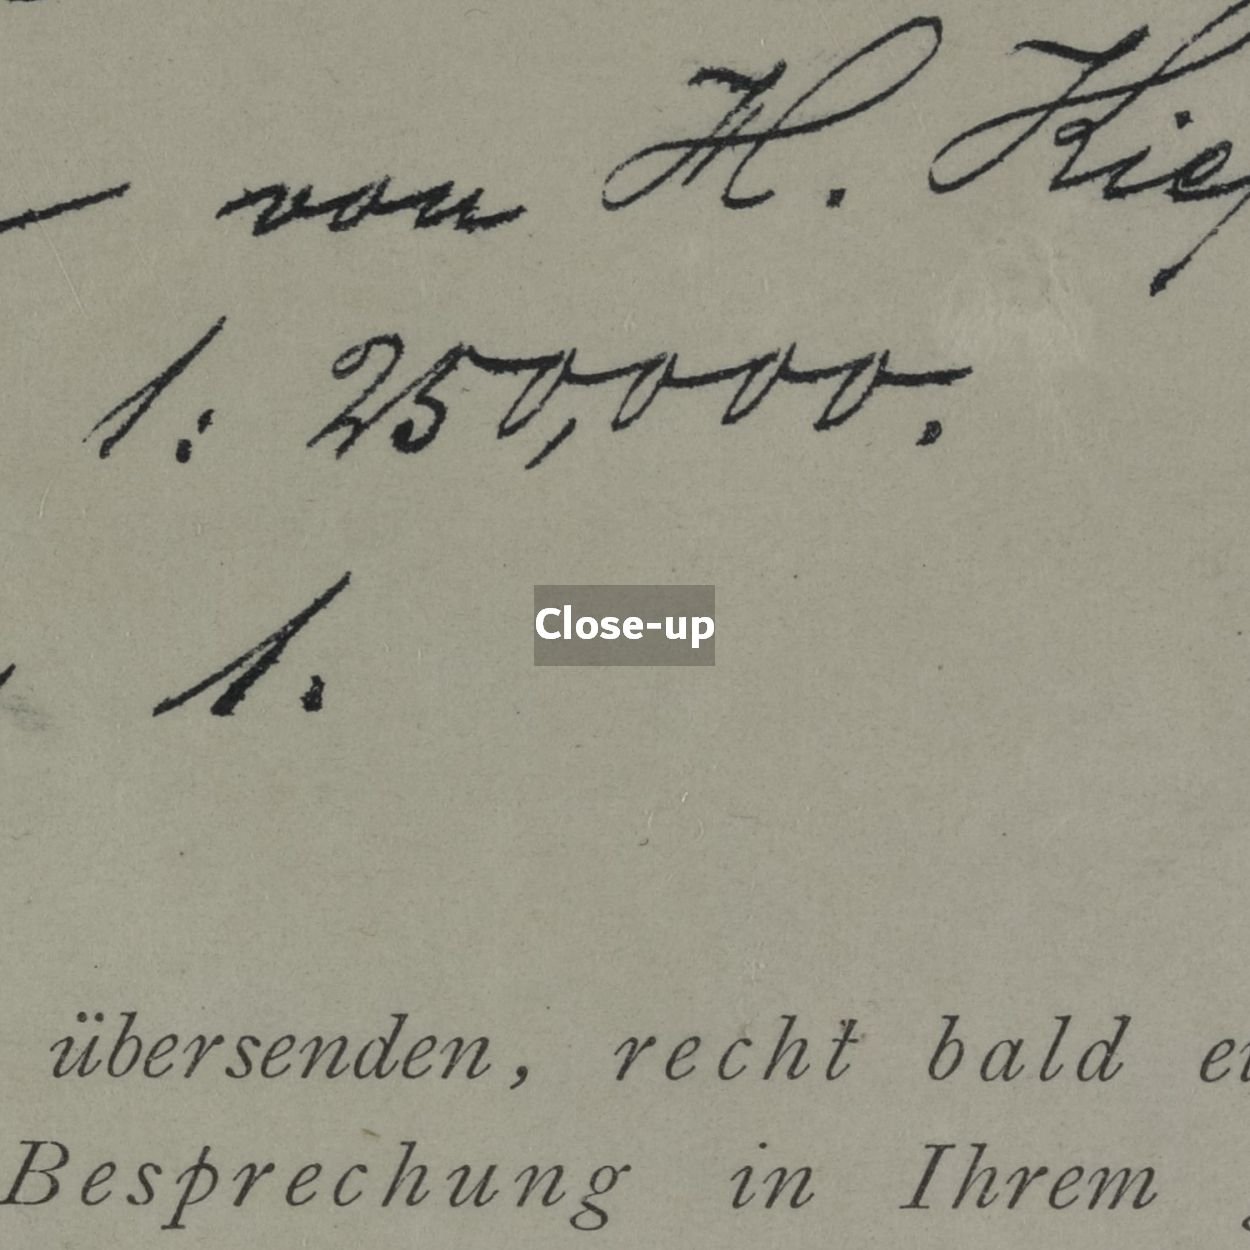 — von H. Kiep
1: 250,000.
1.
Close-up
übersenden, recht bald ei
Besprechung in Ihrem g